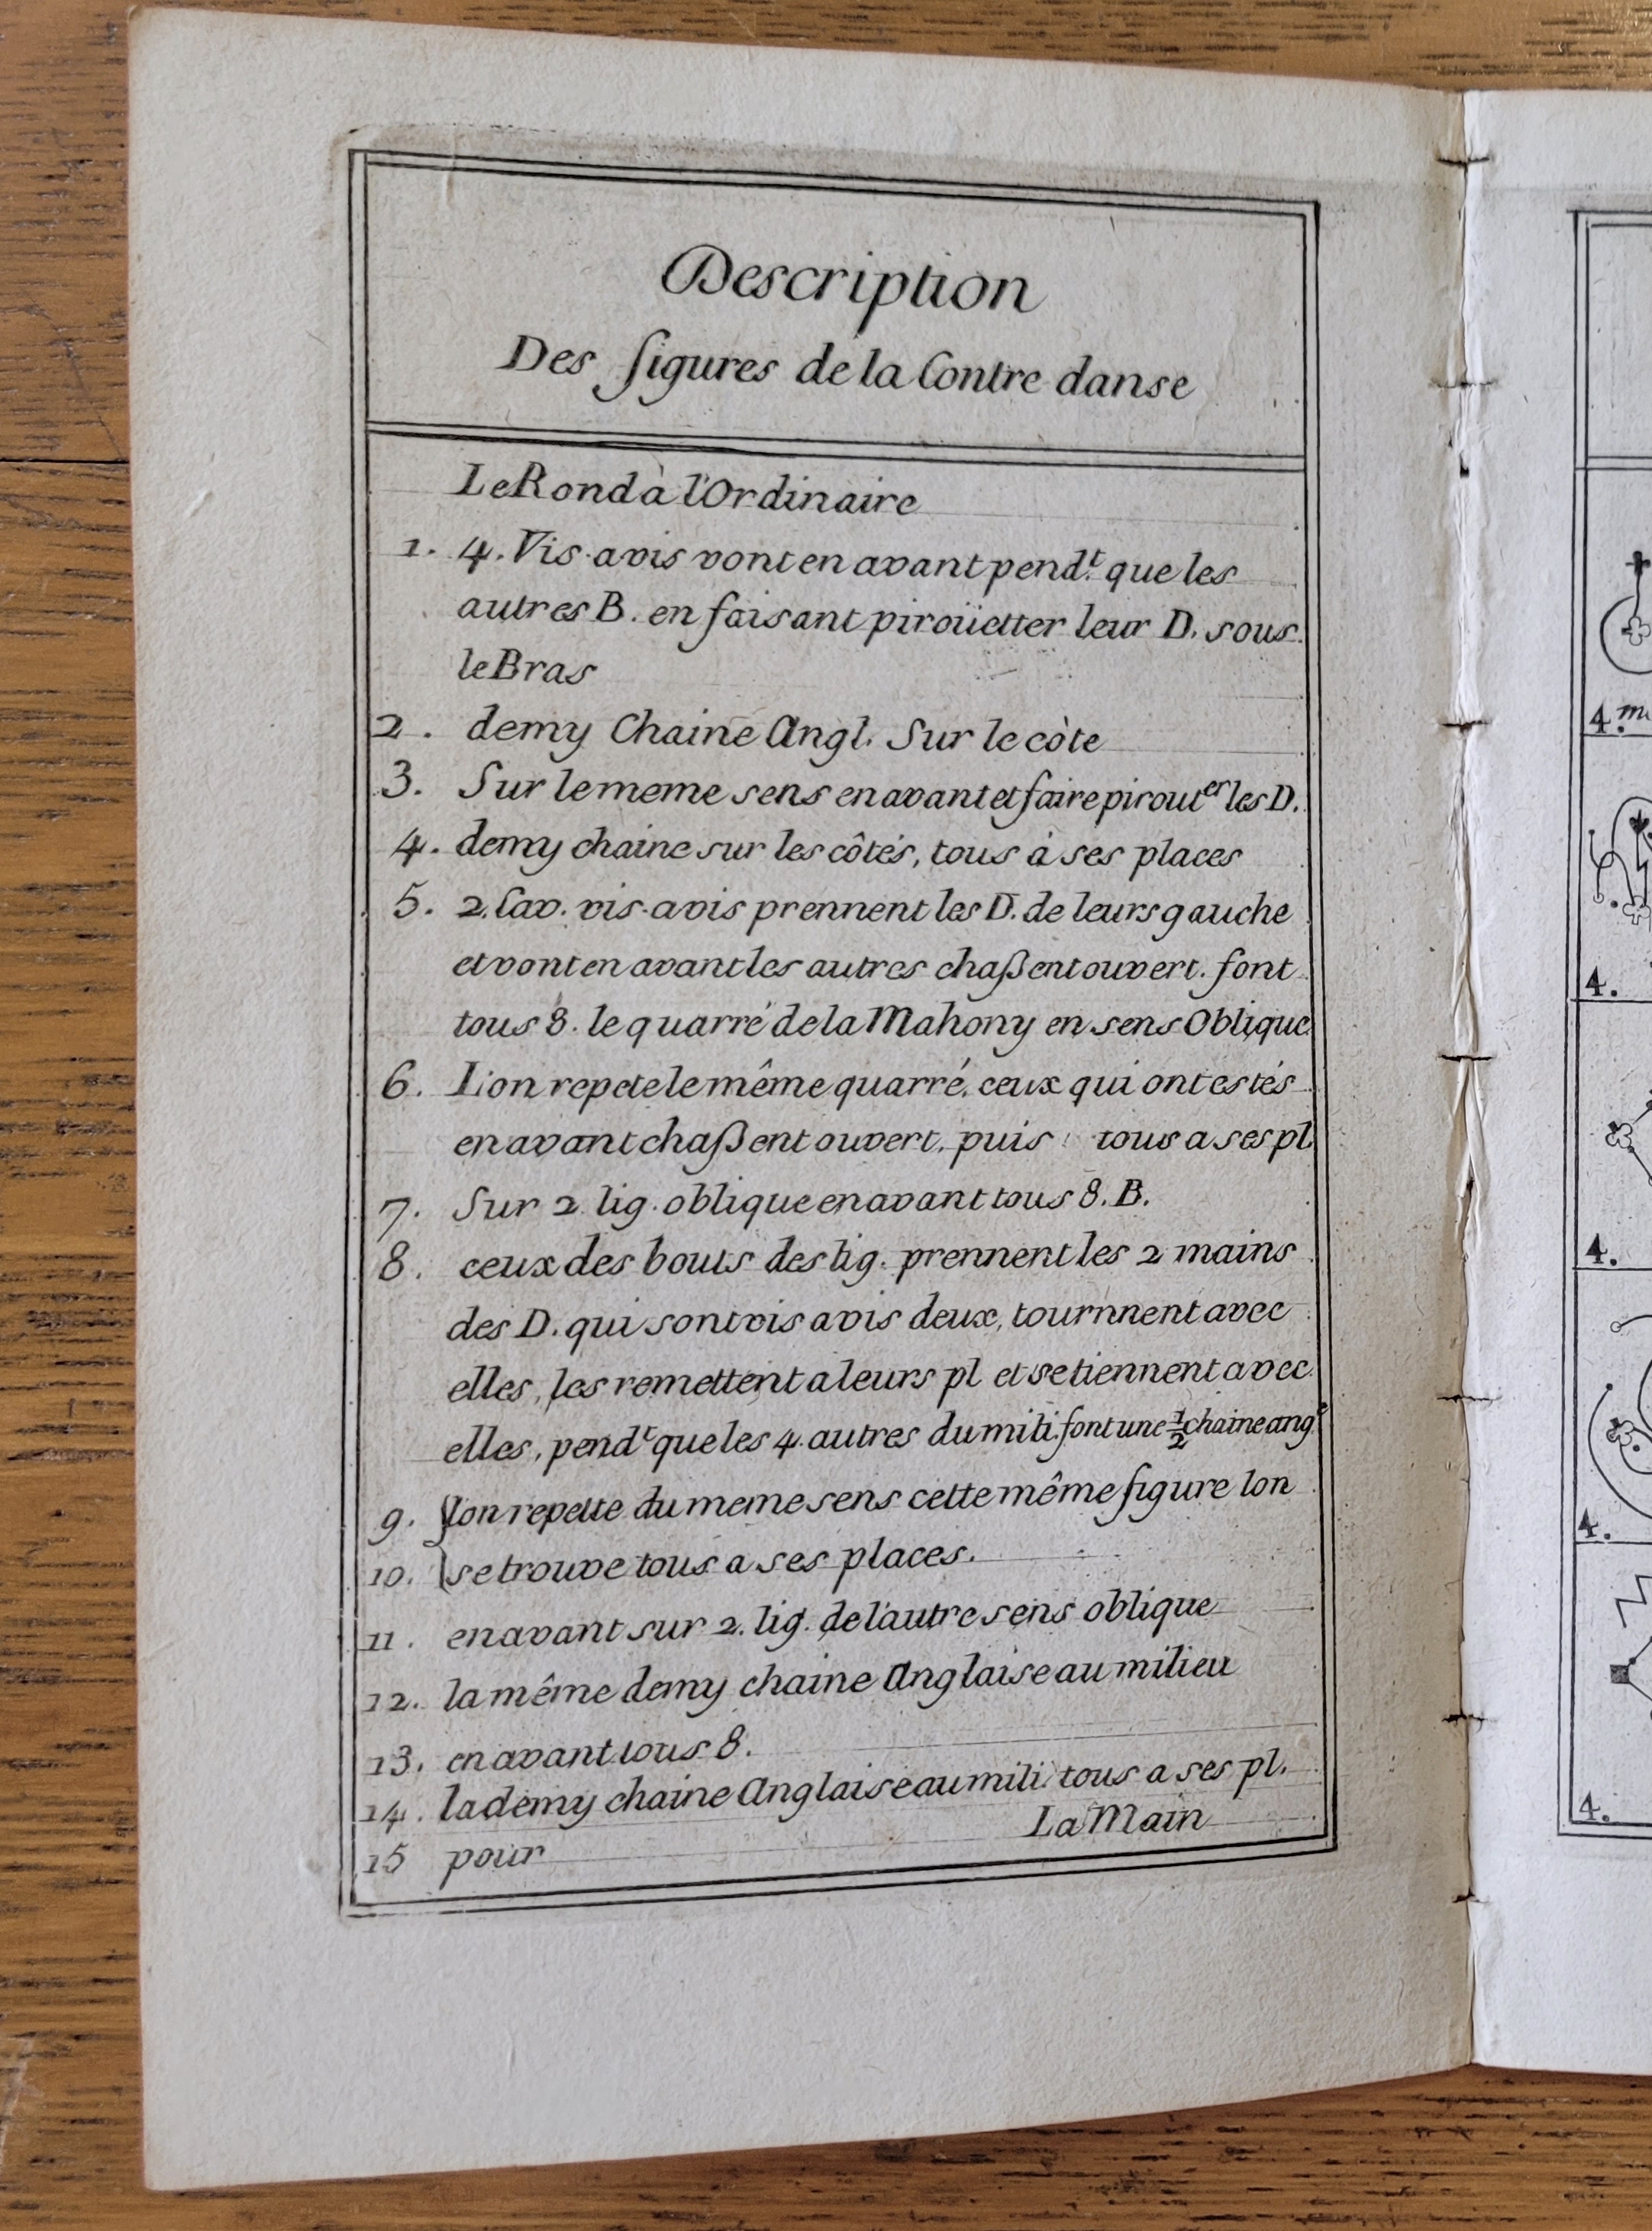 Description
Des figures de la Contre danse
Le Rond à l'Ordinaire
1. 4. Vis-avis vont en avant pend.t que les
autres B. en faisant piroüetter leur D. sous
le Bras
2. demy Chaine Angl. Sur le còte
3. Sur le meme sens en avant et faire pirouter les D.
4. demy chaine sur les côtés, tous à ses places
5. 2. Cav. vis-avis prennent les D. de leurs gauche
et vont en avant les autres chaßent ouvert. font
tous 8. le quarré de la Mahony en sens Oblique
6. L'on repete le même quarré. ceux qui ont estés
en avant chaßent ouvert, puis tous a ses pl.
7. Sur 2 lig. oblique en avant tous 8. B.
8. ceux des bouts des lig. prennent les 2 mains
des D. qui sont vis avis deux, tournnent avec
elles, les remettent a leurs pl et se tiennent avec
elles, pendt que les 4. autres du mili. font une ½ chaine ange
9. lon repette du meme sens cette même figure lon
10. se trouve tous a ses places.
11. en avant sur 2. lig. de l'autre sens oblique
12. la même demy chaine Anglaise au milieu
13. en avant tous 8.
14. la demy chaine Anglaise au mili. tous a ses pl.
15 pour La Main
4.m
4.
4.
4.
4.